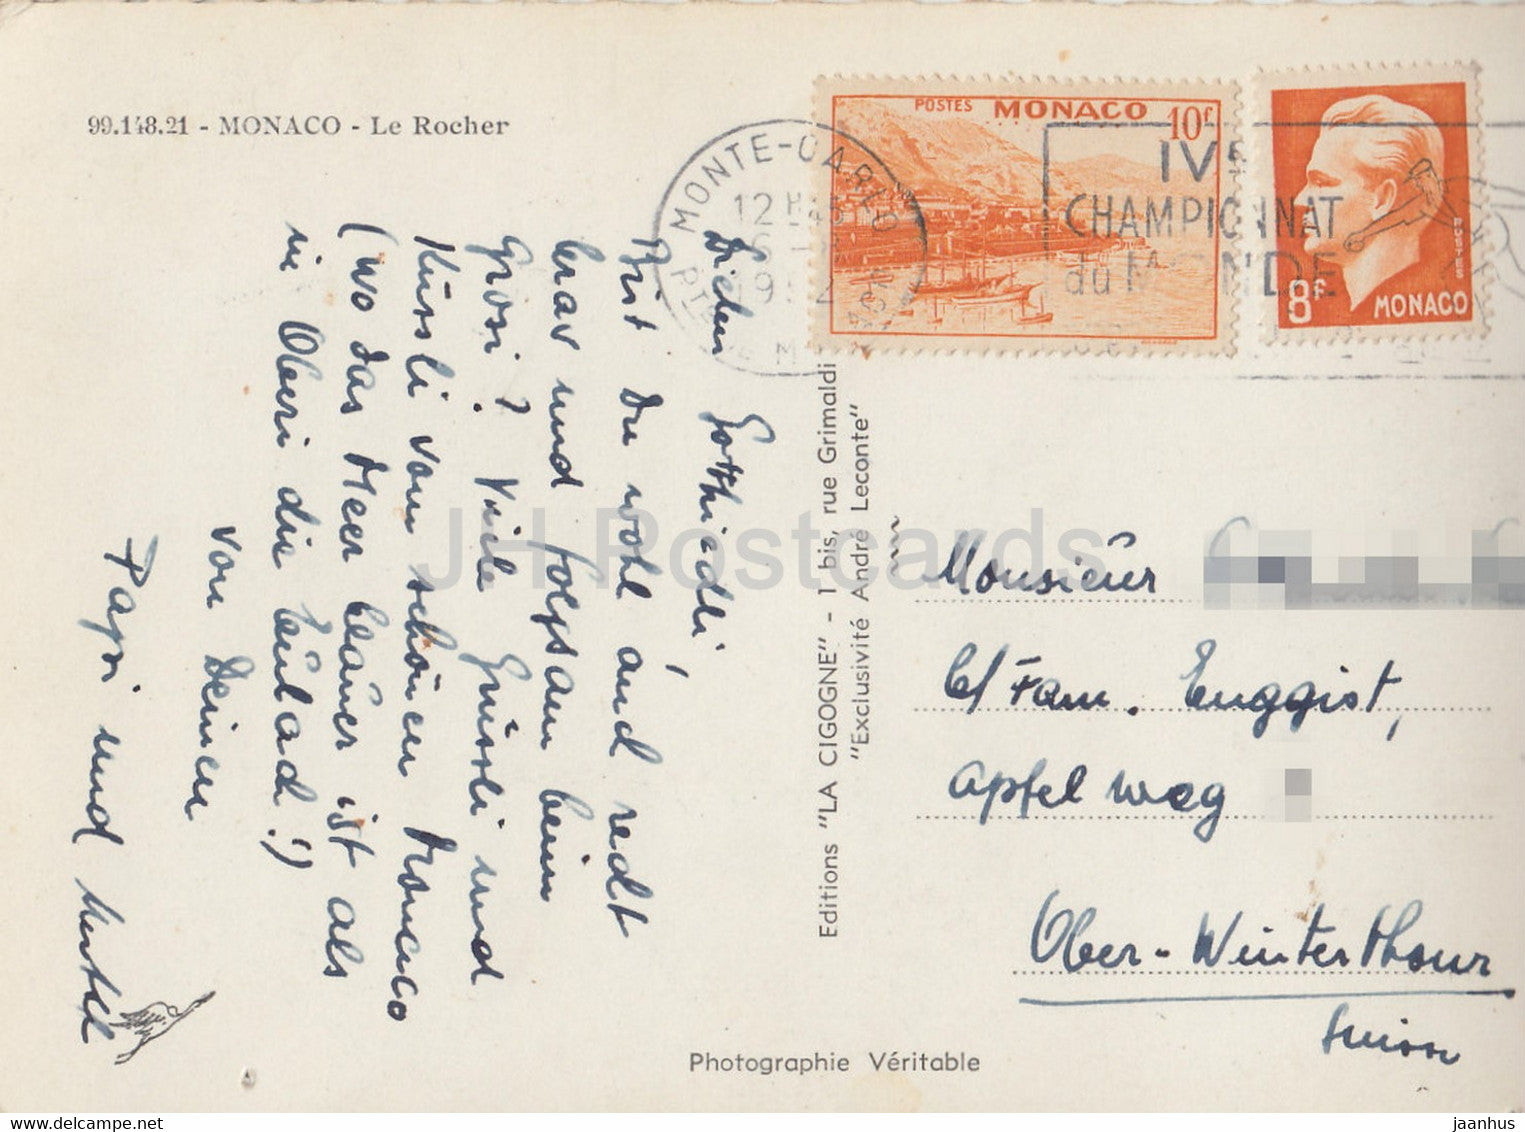 99.148.21 - MONACO - Le Rocher
POSTES MONACO 10f
8f MONACO
POSTES
MONTE-CARLO
12 H 45
IVe
CHAMPIONNAT
du MONDE
Lieber Gotthardli,
Bist Du wohl und redt
brav und folgsam beim
Grosi? Viele Grüssli und
Küssli vom schönen Monaco
(wo das Meer blauer ist als
in Oberi die Eulach!)
von Deinen
Papi und Mutti
Editions "LA CIGOGNE" - 1 bis, rue Grimaldi
"Exclusivité André Leconte"
Monsieur
c/ Fam. Zuggist,
Apfelweg
Ober-Winterthour
Suisse
Photographie Véritable
JH Postcards
www.delcampe.net
jaanhus